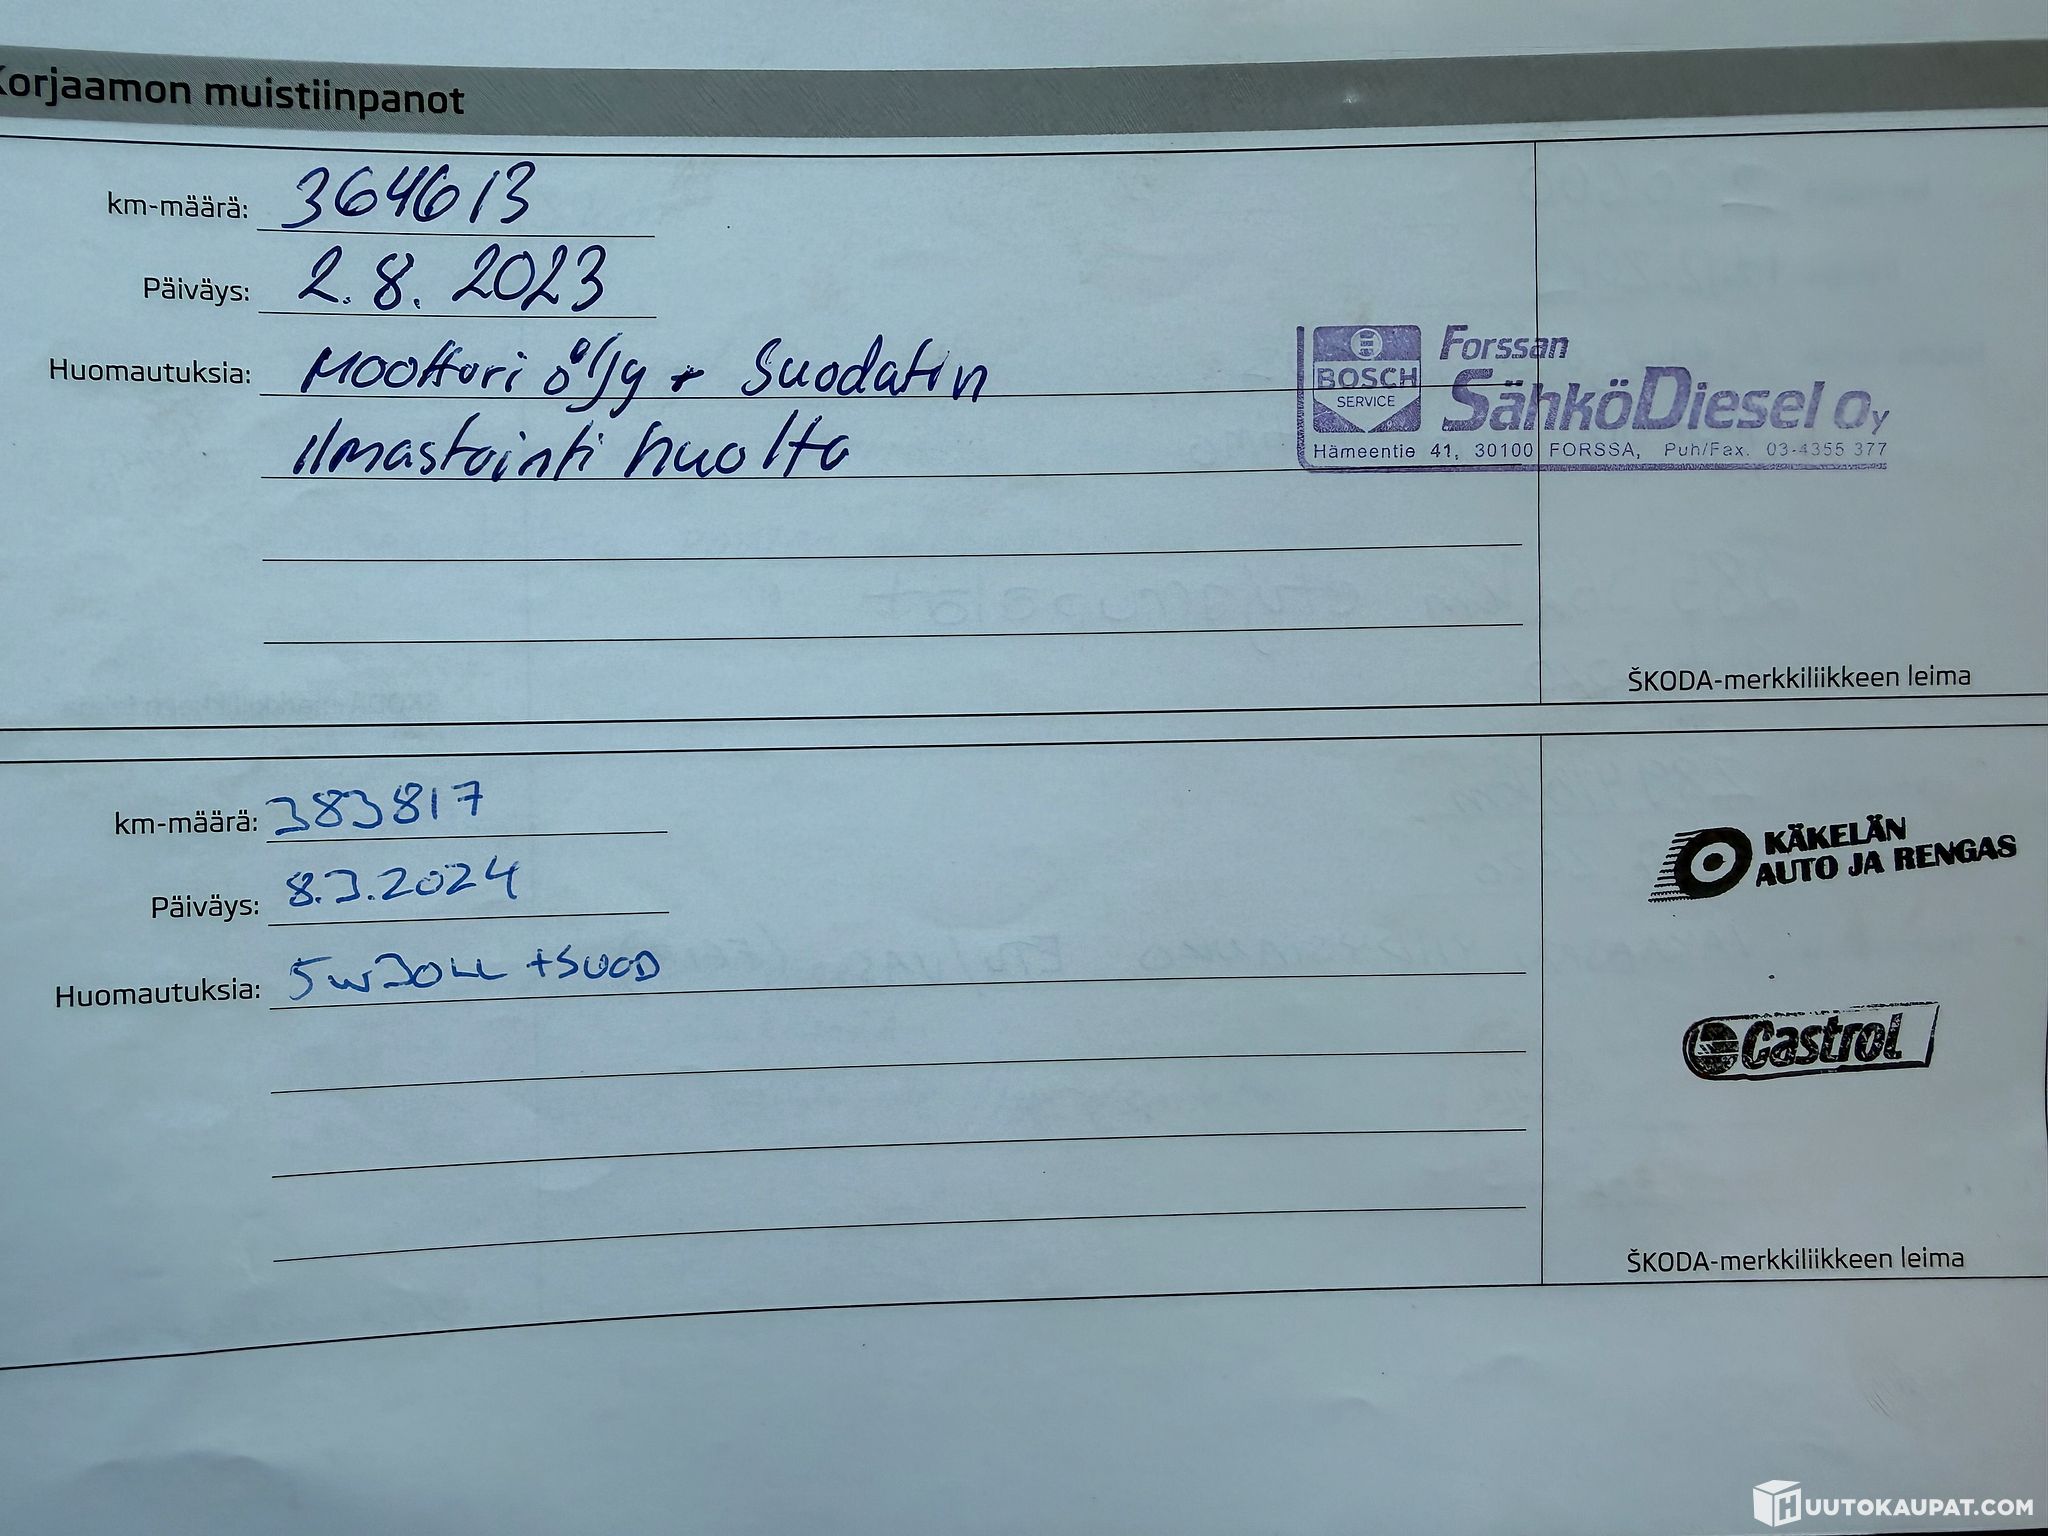 Korjaamon muistiinpanot
km-määrä: 364613
Päiväys: 2.8.2023
Huomautuksia: Moottori öljy + Suodatin
Ilmastointi huolto
BOSCH
SERVICE
Forssan
SähköDiesel Oy
Hämeentie 41, 30100 FORSSA, Puh/Fax. 03-4355 377
ŠKODA-merkkiliikkeen leima
km-määrä: 383817
Päiväys: 8.3.2024
Huomautuksia: 5W30LL +SUOD
KÄKELÄN
AUTO JA RENGAS
Castrol
ŠKODA-merkkiliikkeen leima
HUUTOKAUPAT.COM